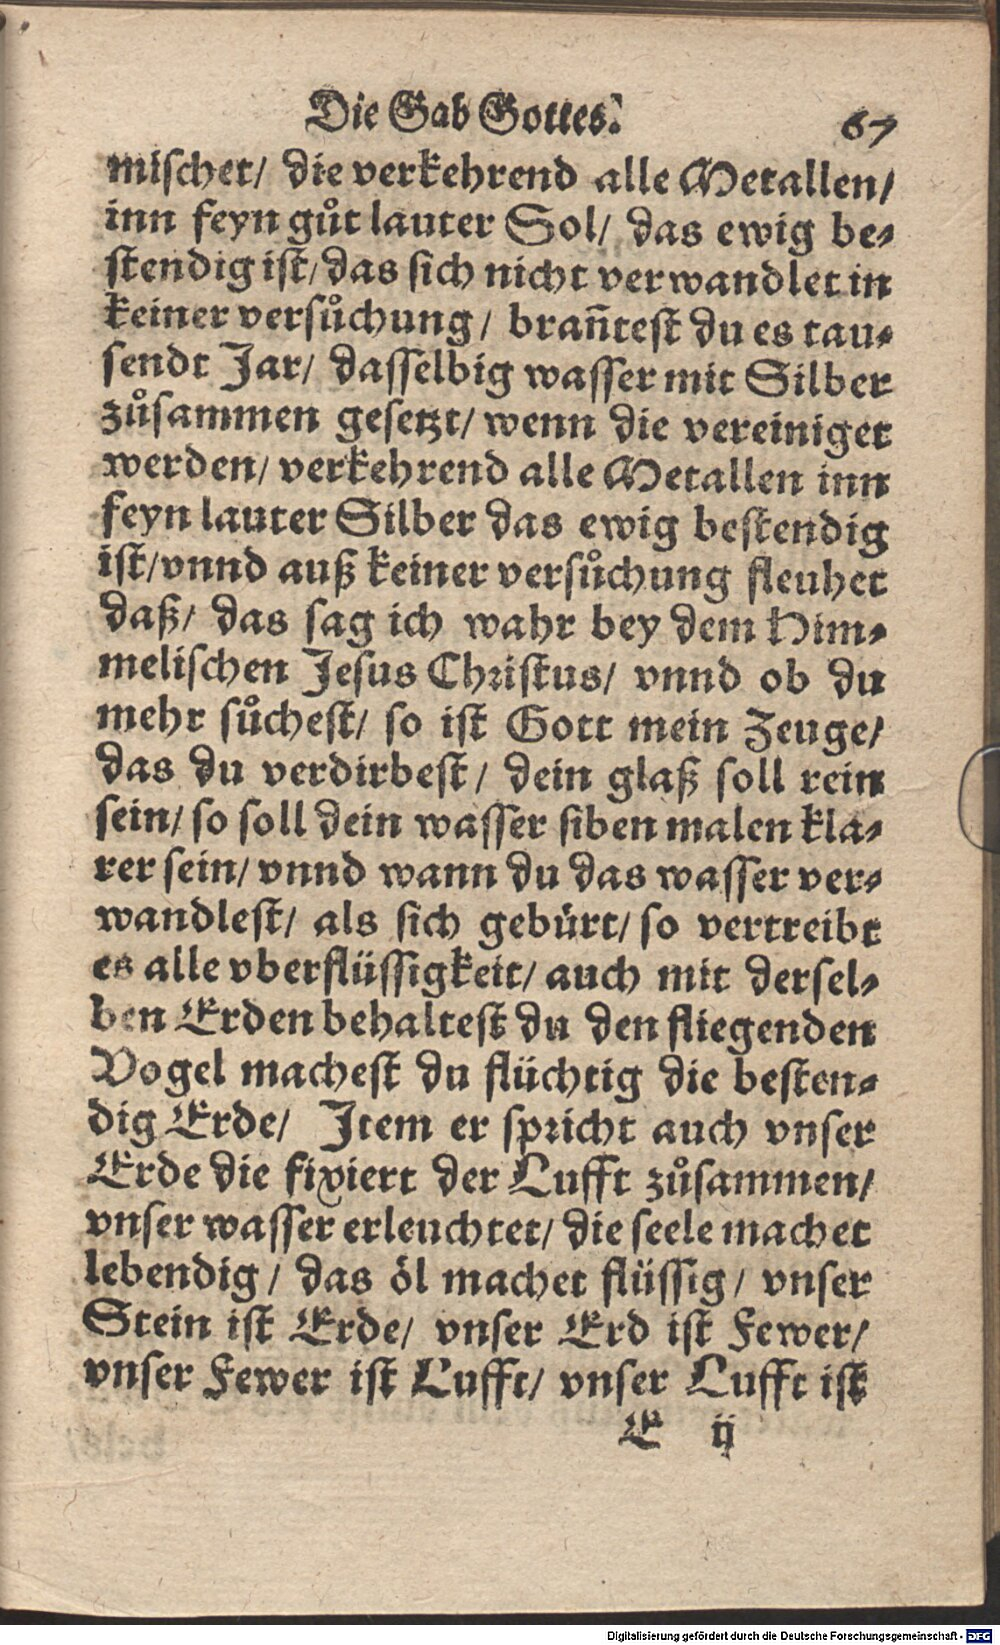 Die Gab Gottes. 67
mischet/ die verkehrend alle Metallen/
inn feyn gůt lauter Sol/ das ewig be⸗
stendig ist/ das sich nicht verwandlet in
keiner versůchung/ brañtest du es tau⸗
sendt Jar/ dasselbig wasser mit Silber
zůsammen gesetzt/ wenn die vereiniget
werden/ verkehrend alle Metallen inn
feyn lauter Silber das ewig bestendig
ist/ vnnd auß keiner versůchung fleuhet
daß/ das sag ich wahr bey dem Him⸗
melischen Jesus Christus/ vnnd ob du
mehr sůchest/ so ist Gott mein Zeuge/
das du verdirbest/ dein glaß soll rein
sein/ so soll dein wasser siben malen kla⸗
rer sein/ vnnd wann du das wasser ver⸗
wandlest/ als sich gebürt/ so vertreibt
es alle vberflüssigkeit/ auch mit dersel⸗
ben Erden behaltest du den fliegenden
Vogel machest du flüchtig die besten⸗
dig Erde/ Item er spricht auch vnser
Erde die fixiert der Lufft zůsammen/
vnser wasser erleuchtet/ die seele machet
lebendig/ das öl machet flüssig/ vnser
Stein ist Erde/ vnser Erd ist Fewer/
vnser Fewer ist Lufft/ vnser Lufft ist
E ij
Digitalisierung gefördert durch die Deutsche Forschungsgemeinschaft - DFG